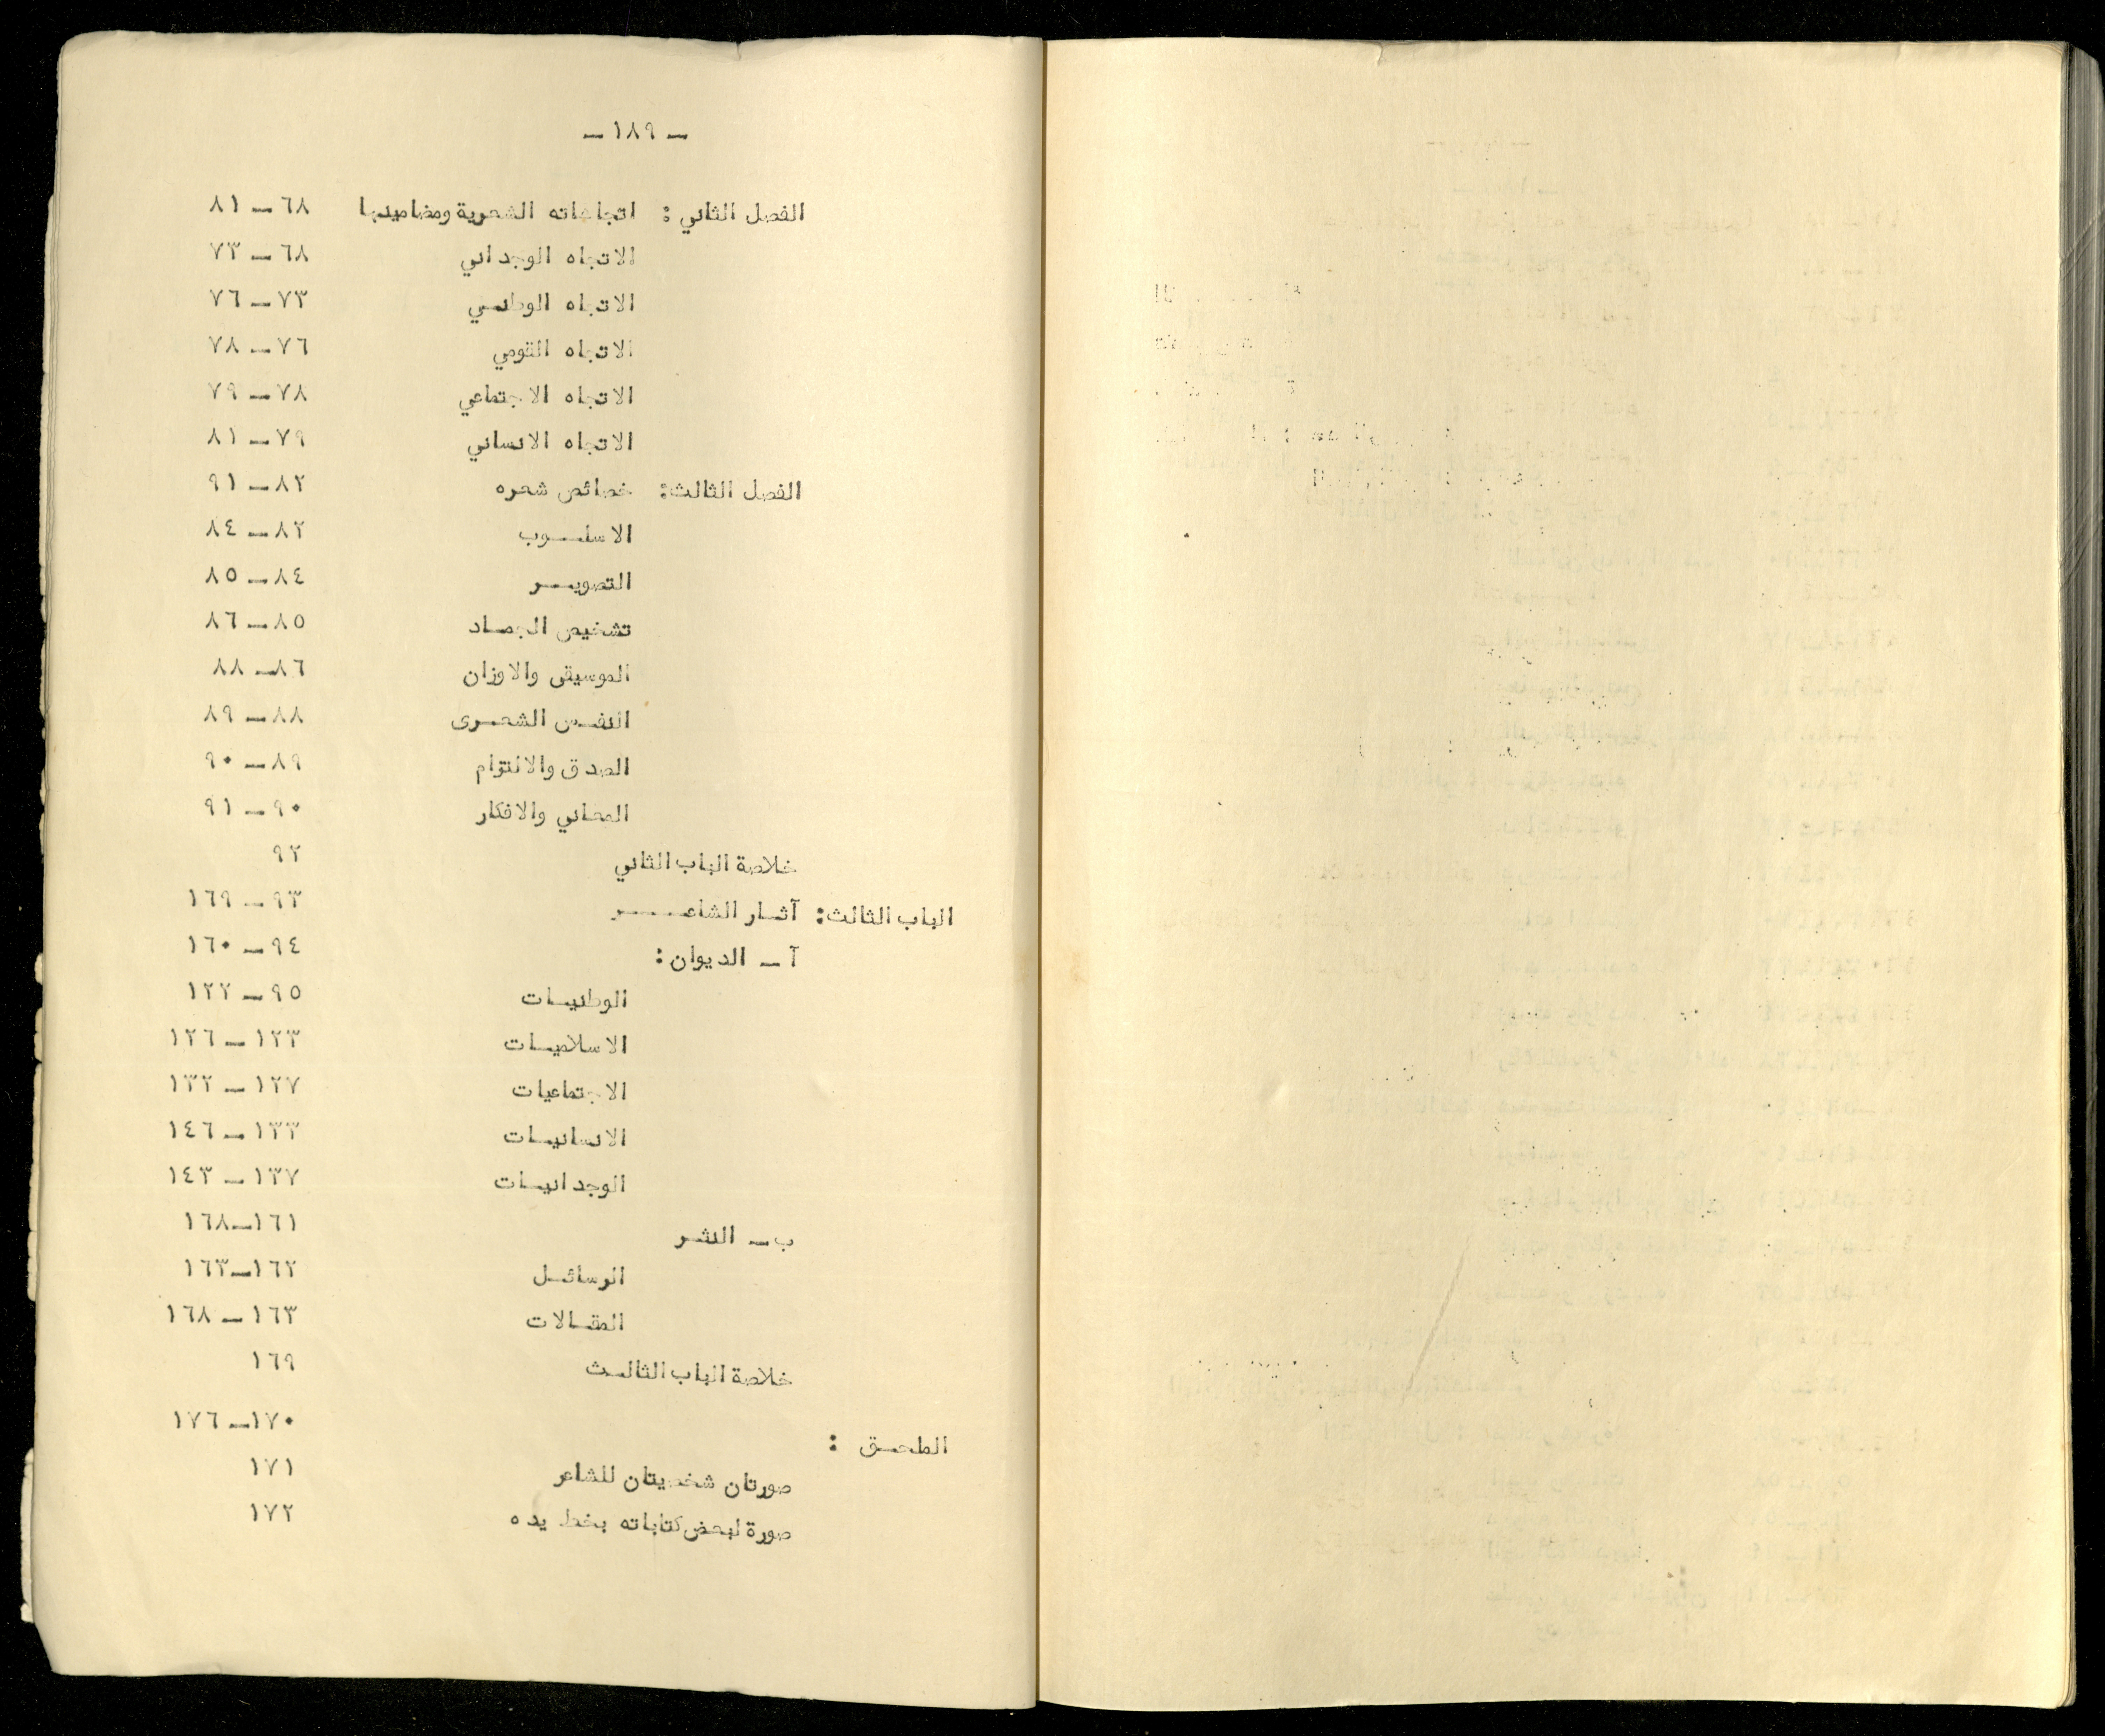 ـ ١٨٩ ـ
الفصل الثاني : اتجاهاته الشعرية ومضامينها ٦٨ ـ ٨١
الاتجاه الوجداني ٦٨ ـ ٧٣
الاتجاه الوطني ٧٣ ـ ٧٦
الاتجاه القومي ٧٦ ـ ٧٨
الاتجاه الاجتماعي ٧٨ ـ ٧٩
الاتجاه الانساني ٧٩ ـ ٨١
الفصل الثالث: خصائص شعره ٨٢ ـ ٩١
الاسلـــوب ٨٢ ـ ٨٤
التصويـــر ٨٤ ـ ٨٥
تشخيص الجمـاد ٨٥ ـ ٨٦
الموسيقى والاوزان ٨٦ ـ ٨٨
النفـس الشعـرى ٨٨ ـ ٨٩
الصدق والالتزام ٨٩ ـ ٩٠
المعاني والافكار ٩٠ ـ ٩١
خلاصة الباب الثاني ٩٢
الباب الثالث: آثـار الشاعـــــر ٩٣ ـ ١٦٩
آ ـ الديوان : ٩٤ ـ ١٦٠
الوطنيـات ٩٥ ـ ١٢٢
الاسلاميـات ١٢٣ ـ ١٢٦
الاجتماعيات ١٢٧ ـ ١٣٢
الانسانيـات ١٣٣ ـ ١٤٦
الوجدانيـات ١٣٧ ـ ١٤٣
ب ـ النثـر ١٦١ ـ ١٦٨
الرسائـل ١٦٢ ـ ١٦٣
المقـالات ١٦٣ ـ ١٦٨
خلاصة الباب الثالـث ١٦٩
الملحـق : ١٧٠ ـ ١٧٦
صورتان شخصيتان للشاعر ١٧١
صورة لبعض كتاباته بخط يده ١٧٢